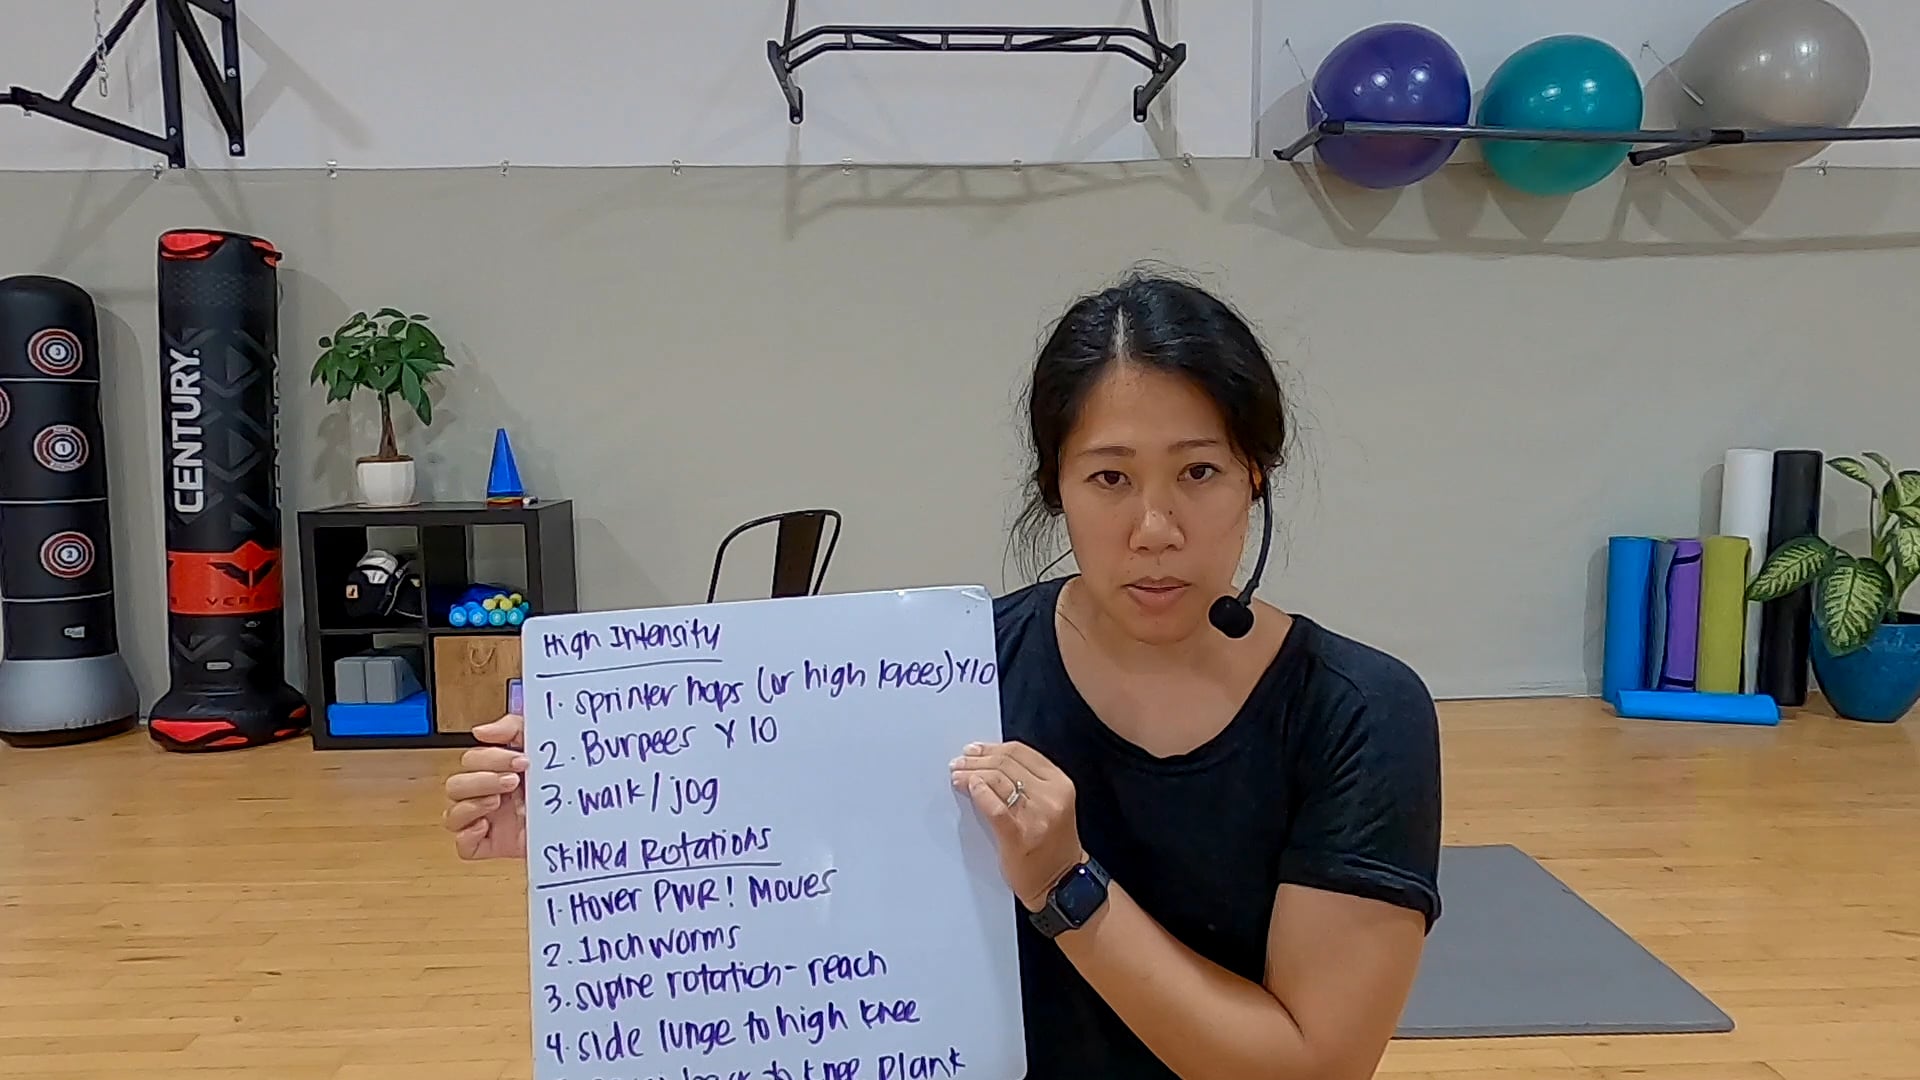 High Intensity
1. sprinter hops (or high knees) x10
2. Burpees x 10
3. walk/jog
Skilled Rotations
1. Hover PWR! Moves
2. Inchworms
3. supine rotation - reach
4. side lunge to high knee
to knee plank
CENTURY.
3
1
2